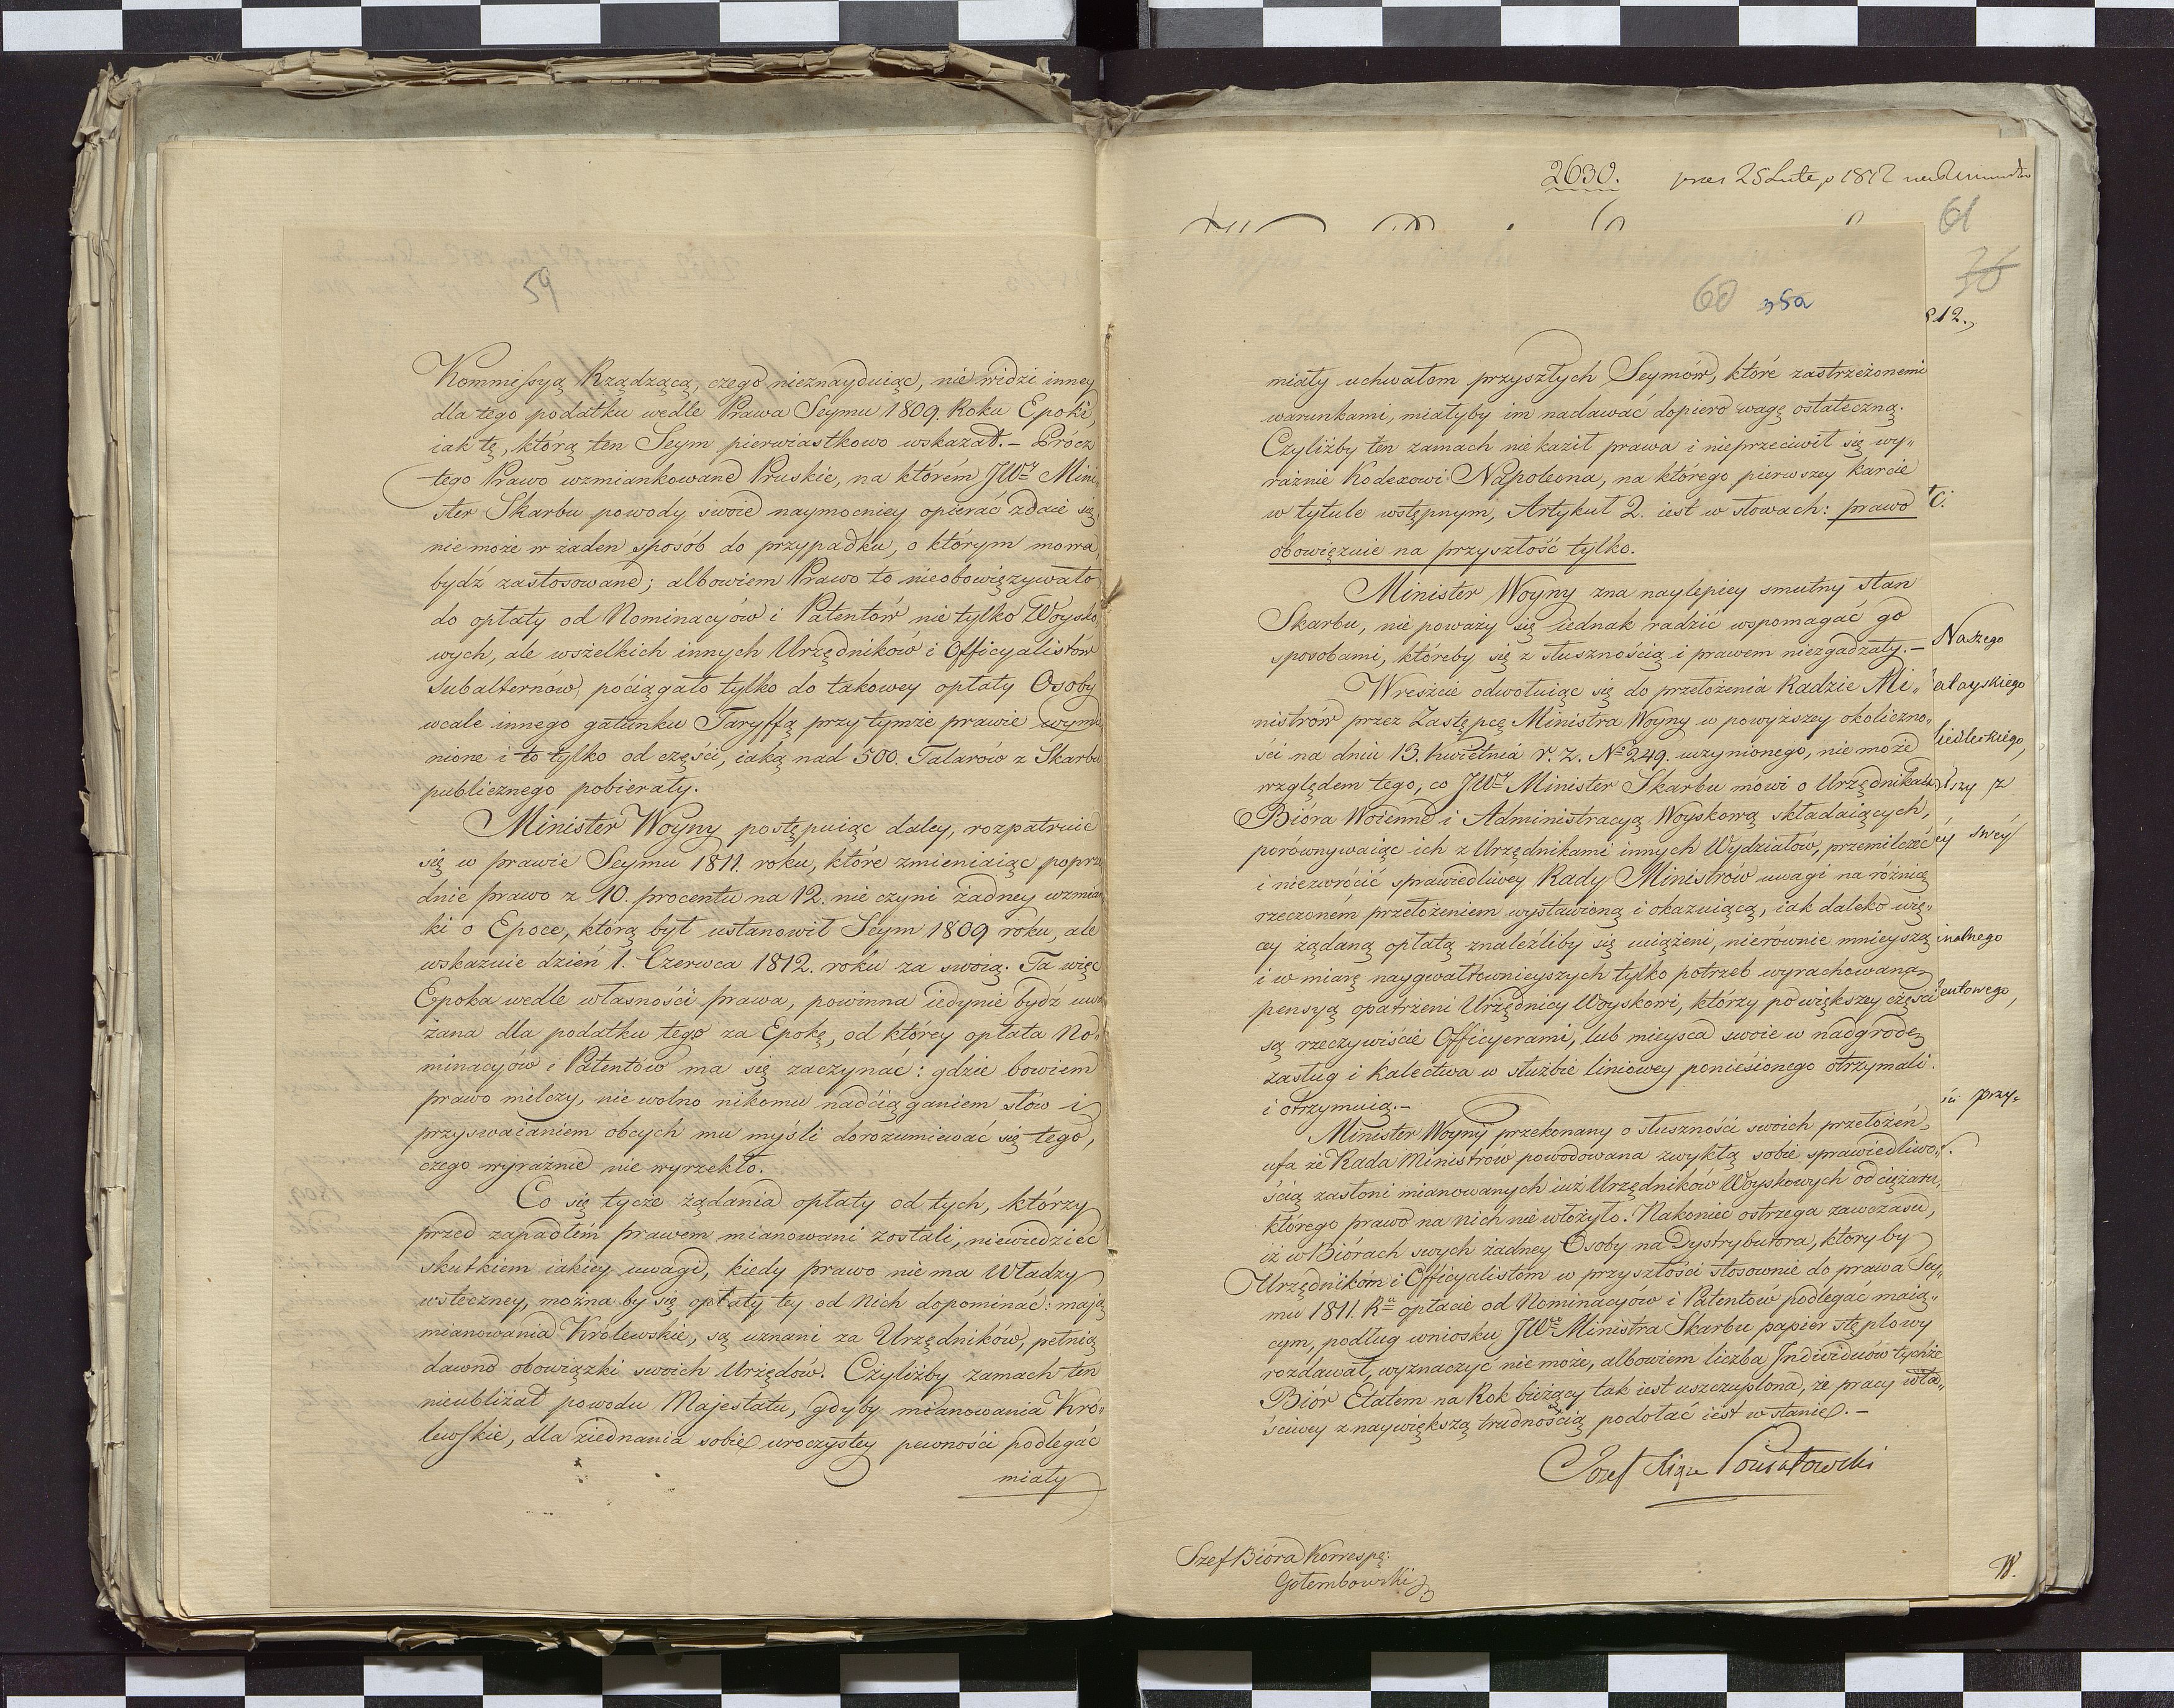 59
Kommissyą Rządzącą, czego nieznayduiąc, nie widzi inney
dla tego podatku wedle Prawa Seymu 1809. Roku Epoki,
iak tę, którą ten Seym pierwiastkowo wskazał. – Prócz
tego Prawo wzmiankowane Pruskie, na którém JWy Mini
ster Skarbu powody swoie naymocniey opierać zdaie się,
nie może w żaden sposób do przypadku, o którym mowa,
bydź zastosowane; albowiem Prawo to nieobowięzywało
do opłaty od Nominacyów i Patentów nie tylko Woysko,
wych, ale wszelkich innych Urzędników i Officyalistów
subalternów, pociągało tylko do takowey opłaty Osoby
wcale innego gatunku Taryffą przy tymże prawie wymie
nione i to tylko od części, iaką nad 500. Talarów z Skarbu
publicznego pobierały.
Minister Woyny postępuiąc daley, rozpatruie
się w prawie Seymu 1811. roku, które zmieniaiąc poprze
dnie prawo z 10. procentu na 12. nie czyni żadney wzmian
ki o Epoce, którą był ustanowił Seym 1809 roku, ale
wskazuie dzień 1. Czerwca 1812. roku za swoią. Ta więc
Epoka wedle własności prawa, powinna iedynie bydź uwa
żana dla podatku tego za Epokę, od którey opłata No„
minacyów i Patentów ma się zaczynać: gdzie bowiem
prawo milczy, nie wolno nikomu nadciąganiem słów i
przyswaianiem obcych mu myśli dorozumiewać się tego,
czego wyraźnie nie wyrzekło.
Co się tycze żądania opłaty od tych, którzy
przed zapadłém prawem mianowani zostali, niewiedzieć
skutkiem iakiey uwagi, kiedy prawo nie ma Władzy
wsteczney, można by się opłaty tey od nich dopominać: mają
mianowania Królewskie, są uznani za Urzędników, pełnią
dawno obowiązki swoich Urzędów. Czyliżby zamach ten
nieubliżał powodu Majestatu, gdyby mianowania Kró„
lewskie, dla ziednania sobie uroczystey pewności podlegać
miały
2630. 25 Lutego 1812
61
36
60 35a
812.
miały uchwałom przyszłych Seymów, które zastrzeżonemi
warunkami, miałyby im nadawać dopiero wagę ostateczną.
Czyliżby ten zamach nie kaził prawa i nieprzeciwił się wy„
raźnie Kodexowi Napoleona, na którego pierwszey karcie
w tytule wstępnym, Artykuł 2. iest w słowach: prawo
obowięzuie na przyszłość tylko.
Minister Woyny zna naylepiey smutny stan
Skarbu, nie poważy się iednak radzić wspomagać go
sposobami, któreby się z słusznością i prawem niezgadzały. –
Naszego
Wreszcie odwołuiąc się do przełożenia Radzie Mi„
nistrów przez Zastępcę Ministra Woyny w powyższey okoliczno„
ści na dniu 13. kwietnia r. z. No 249. uczynionego, nie może
względem tego, co JWy Minister Skarbu mówi o Urzędnikach
Bióra Woienne i Administracyą Woyskową składaiących,
porównywaiąc ich z Urzędnikami innych Wydziałów, przemilczeć
i niezwrócić sprawiedliwey Rady Ministrów uwagi na różnią
rzeczoném przełożeniem wystawioną i okazuiącą, iak daleko wię„
cey żądaną opłatą znaleźliby się uciążeni, nierównie mnieyszą
i w miarę naygwałtownieyszych tylko potrzeb wyrachowaną
pensyą opatrzeni Urzędnicy Woyskowi, którzy po większey części
są rzeczywiście Officyerami, lub mieysca swoie w nadgrodę
zasług i kalectwa w służbie liniowey poniesionego otrzymali
i otrzymuią. –
Minister Woyny przekonany o słuszności swoich przełożeń,
ufa że Rada Ministrów powodowana zwykłą sobie sprawiedliwo„
ścią zasłoni mianowanych iuż Urzędników Woyskowych od ciężaru,
którego prawo na nich nie włożyło. Nakoniec ostrzega zawczasu,
iż w Biórach swych żadney Osoby na Dystrybutora, który by
Urzędnikóm i Officyalistom w przyszłości stosownie do prawa Sey„
mu 1811. Ru opłacie od Nominacyów i Patentów podlegać maią„
cym, podług wniosku JWo Ministra Skarbu papier stęplowy
rozdawał, wyznaczyć nie może, albowiem liczba Individuów tychże
Biór Etatem na Rok bieżący tak iest uszczuplona, że pracy wła„
ściwey z naywiększą trudnością podołać iest w stanie. –
Józef Xiąże Poniatowski
Szef Bióra Korrespę:
Gołembowski
atoyskiego
iedleckiego,
swéy
inalnego
entowego,
przy„
W.